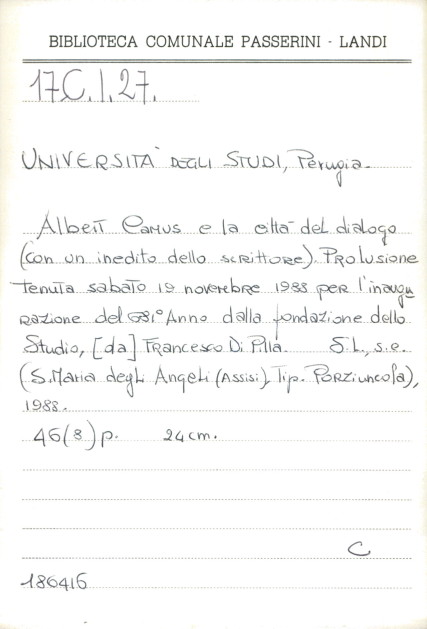 BIBLIOTECA COMUNALE PASSERINI - LANDI
17C.I.27.
UNIVERSITA' DEGLI STUDI, Perugia.
Albert Camus e la città del dialogo
(con un inedito dello scrittore). Prolusione
tenuta sabato 19 novembre 1988 per l'inaugu
razione del 681° Anno dalla fondazione dello
Studio, [da] Francesco Di Pilla. S.L., s.e.
(S. Maria degli Angeli (Assisi), Tip. Porziuncola),
1988.
46(8)p. 24cm.
C
186416